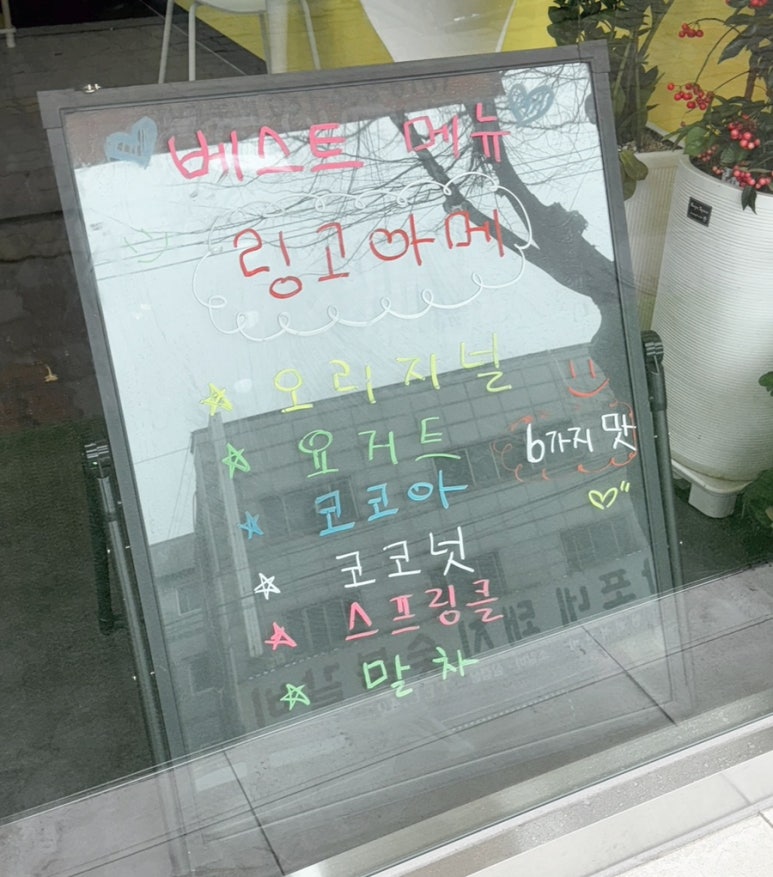 베스트 메뉴
링고아메
오리지널
요거트
6가지 맛
코코아
코코넛
스프링클
말차